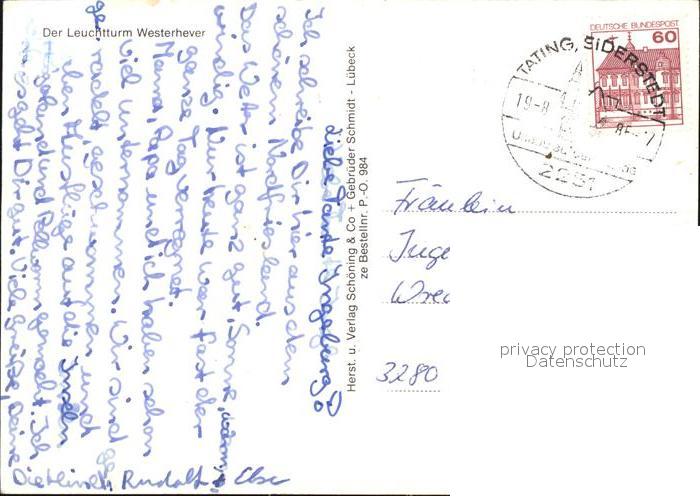 Der Leuchtturm Westerhever
Liebe Tante Ingeborg!
Ich schreibe Dir hier aus dem
schönen Nordfriesland.
Das Wetter ist ganz gut, Sonne,
windig. Nur heute war fast der
ganze Tag verregnet.
Mama, Papa und ich haben schon
viel unternommen. Wir sind
geradelt, geschwommen und
haben Ausflüge auf die Inseln
und Pellworm gemacht. Ich
geht Dir gut. Viele Grüße, Deine
Rudolf + Else
Herst. u. Verlag Schöning & Co + Gebrüder Schmidt - Lübeck
ze Bestellnr. P.-O. 984
DEUTSCHE BUNDESPOST
60
TATING, EIDERSTEDT
19-8
2251
Fräulein
Inge
3280
privacy protection
Datenschutz